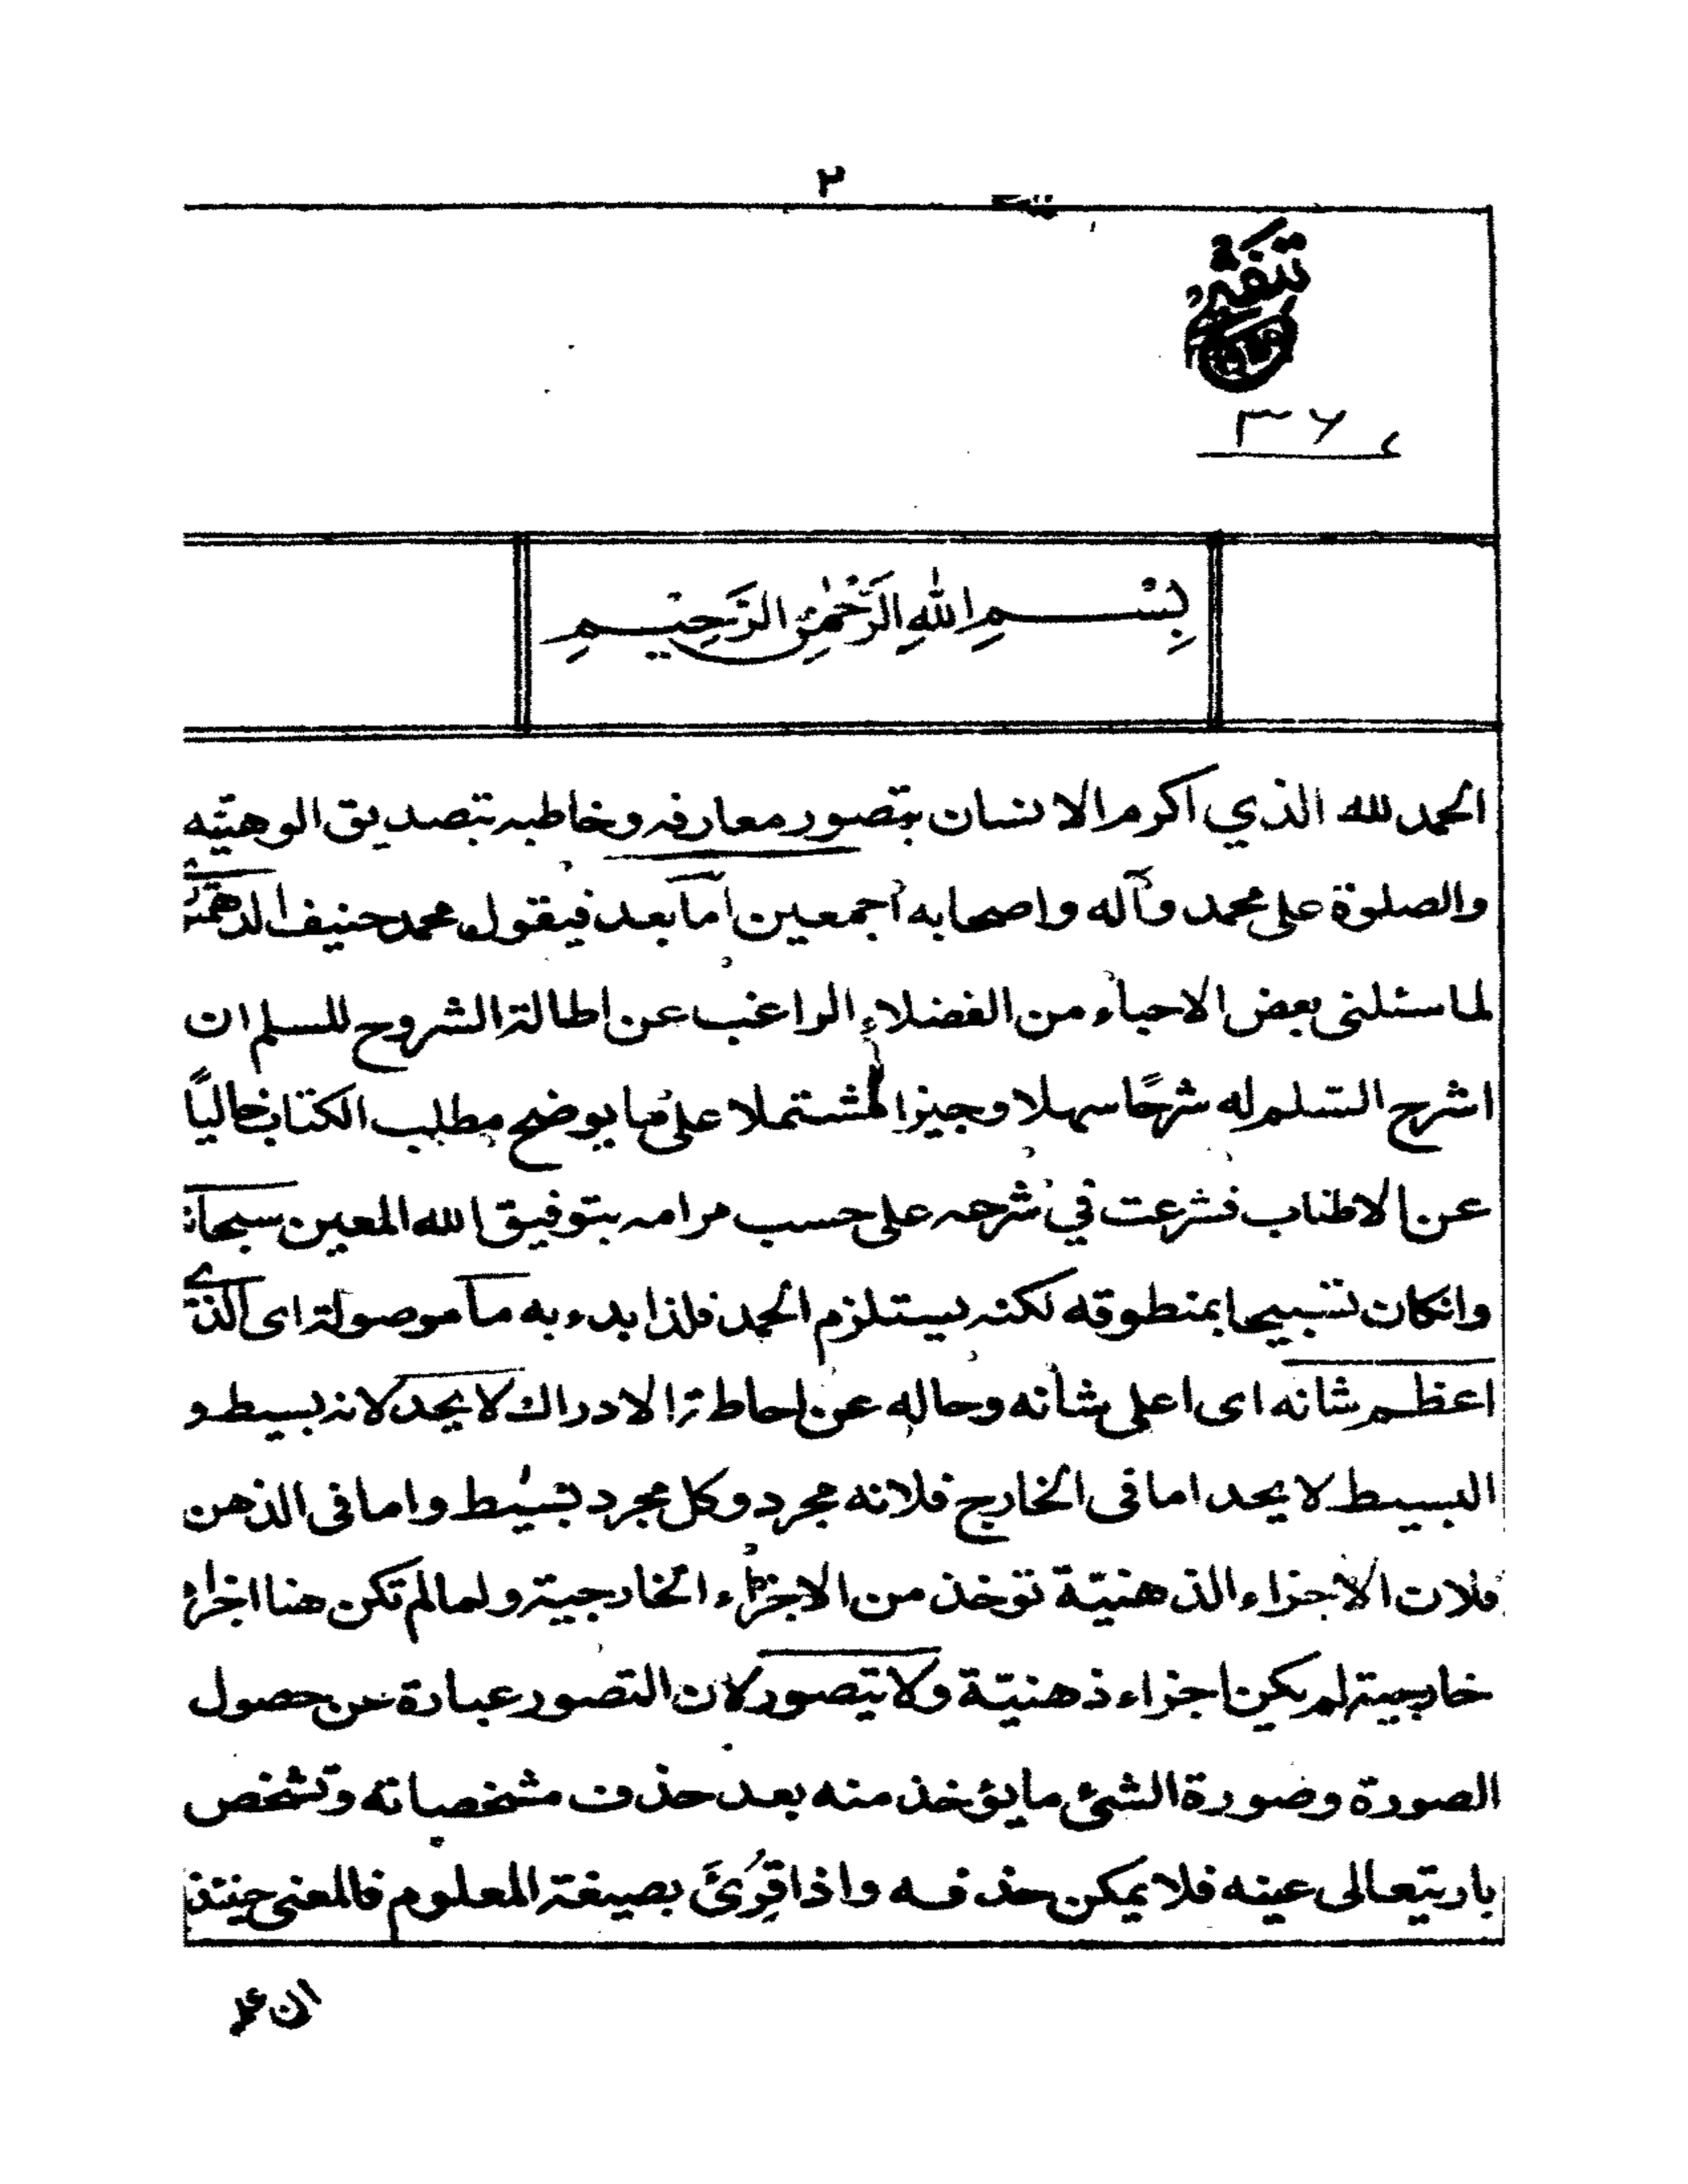 ٢
٣٦
بِسْمِ اللهِ الرَّحْمٰنِ الرَّحِيْمِ
الحمد لله الذي اكرم الانسان بتصور معارفه وخاطبه بتصديق الوهيّته
والصلوة على محمد وآله واصحابه اجمعين اما بعد فيقول محمد حنيف
لما سئلنى بعض الاحباء من الفضلاء الراغب عن اطالة الشروح للسلم ان
اشرح السّلم له شرحًا سهلا وجيزا مشتملا على ما يوضح مطلب الكتاب خاليًا
عن الاطناب فشرعت في شرحه على حسب مرامه بتوفيق الله المعين سبحانه
وانكان تسبيحا بمنطوقه لكنه يستلزم الحمد فلذا بدء به ما موصولة اى الذى
اعظم شانه اى اعلى شأنه وحاله عن احاطة الادراك لا يحد لانه بسيط و
البسيط لا يحد اما فى الخارج فلانه مجرد وكل مجرد بسيط واما فى الذهن
فلان الاجزاء الذهنيّة توخذ من الاجزاء الخارجية ولما لم تكن هنا اجزاء
خارجية لم يكن اجزاء ذهنيّة ولا يتصور لان التصور عبارة عن حصول
الصورة وصورة الشئ ما يؤخذ منه بعد حذف مشخصاته وتشخص
باريتعالى عينه فلا يمكن حذفه واذا قُرِئَ بصيغة المعلوم فالمعنى حينئذ